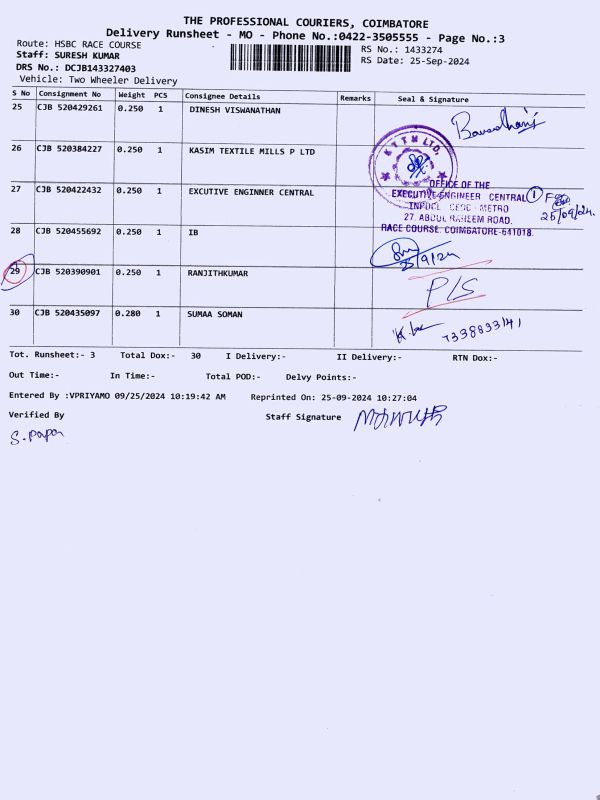 THE PROFESSIONAL COURIERS, COIMBATORE
Delivery Runsheet - MO - Phone No.:0422-3505555 - Page No.:3
Route: HSBC RACE COURSE
RS No.: 1433274
Staff: SURESH KUMAR
RS Date: 25-Sep-2024
DRS No.: DCJB143327403
Vehicle: Two Wheeler Delivery
S No Consignment No Weight PCS Consignee Details Remarks Seal & Signature
25 CJB 520429261 0.250 1 DINESH VISWANATHAN
26 CJB 520384227 0.250 1 KASIM TEXTILE MILLS P LTD
K T T M LTD.
27 CJB 520422432 0.250 1 EXCUTIVE ENGINNER CENTRAL
OFFICE OF THE
EXECUTIVE ENGINEER CENTRAL 1
CEDC - METRO
25/09/24.
27. ABDUL RAHEEM ROAD.
RACE COURSE. COIMBATORE-641018.
28 CJB 520455692 0.250 1 IB
25/9/24
29 CJB 520390901 0.250 1 RANJITHKUMAR
P/S
30 CJB 520435097 0.280 1 SUMAA SOMAN
7338833141
Tot. Runsheet:- 3 Total Dox:- 30 I Delivery:- II Delivery:- RTN Dox:-
Out Time:- In Time:- Total POD:- Delvy Points:-
Entered By :VPRIYAMO 09/25/2024 10:19:42 AM Reprinted On: 25-09-2024 10:27:04
Verified By Staff Signature
S. Papa